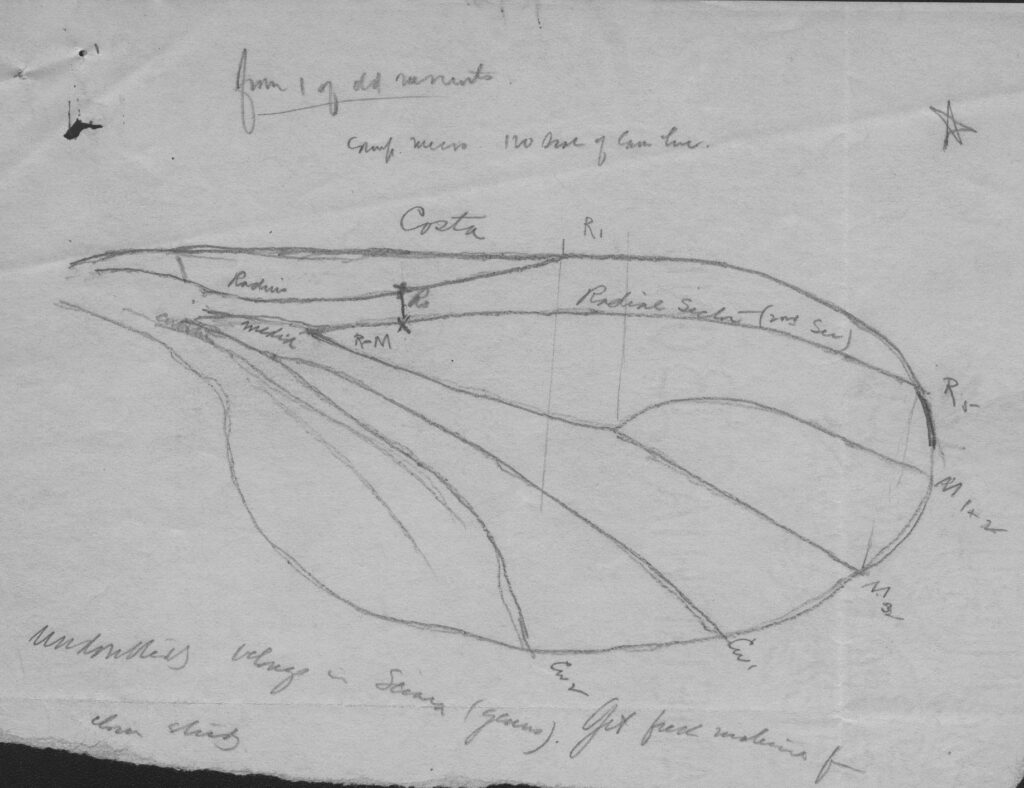 from 1 of old mounts.
Comp. micro. 120 side of Cam luc.
Costa
R1
Radius
Rs
Radial Sector (2nd Sec)
media
R-M
R5
M1+2
M3
Cu1
Cu2
Undoubtedly belongs in Sciara (genus). Get fresh material for
close study